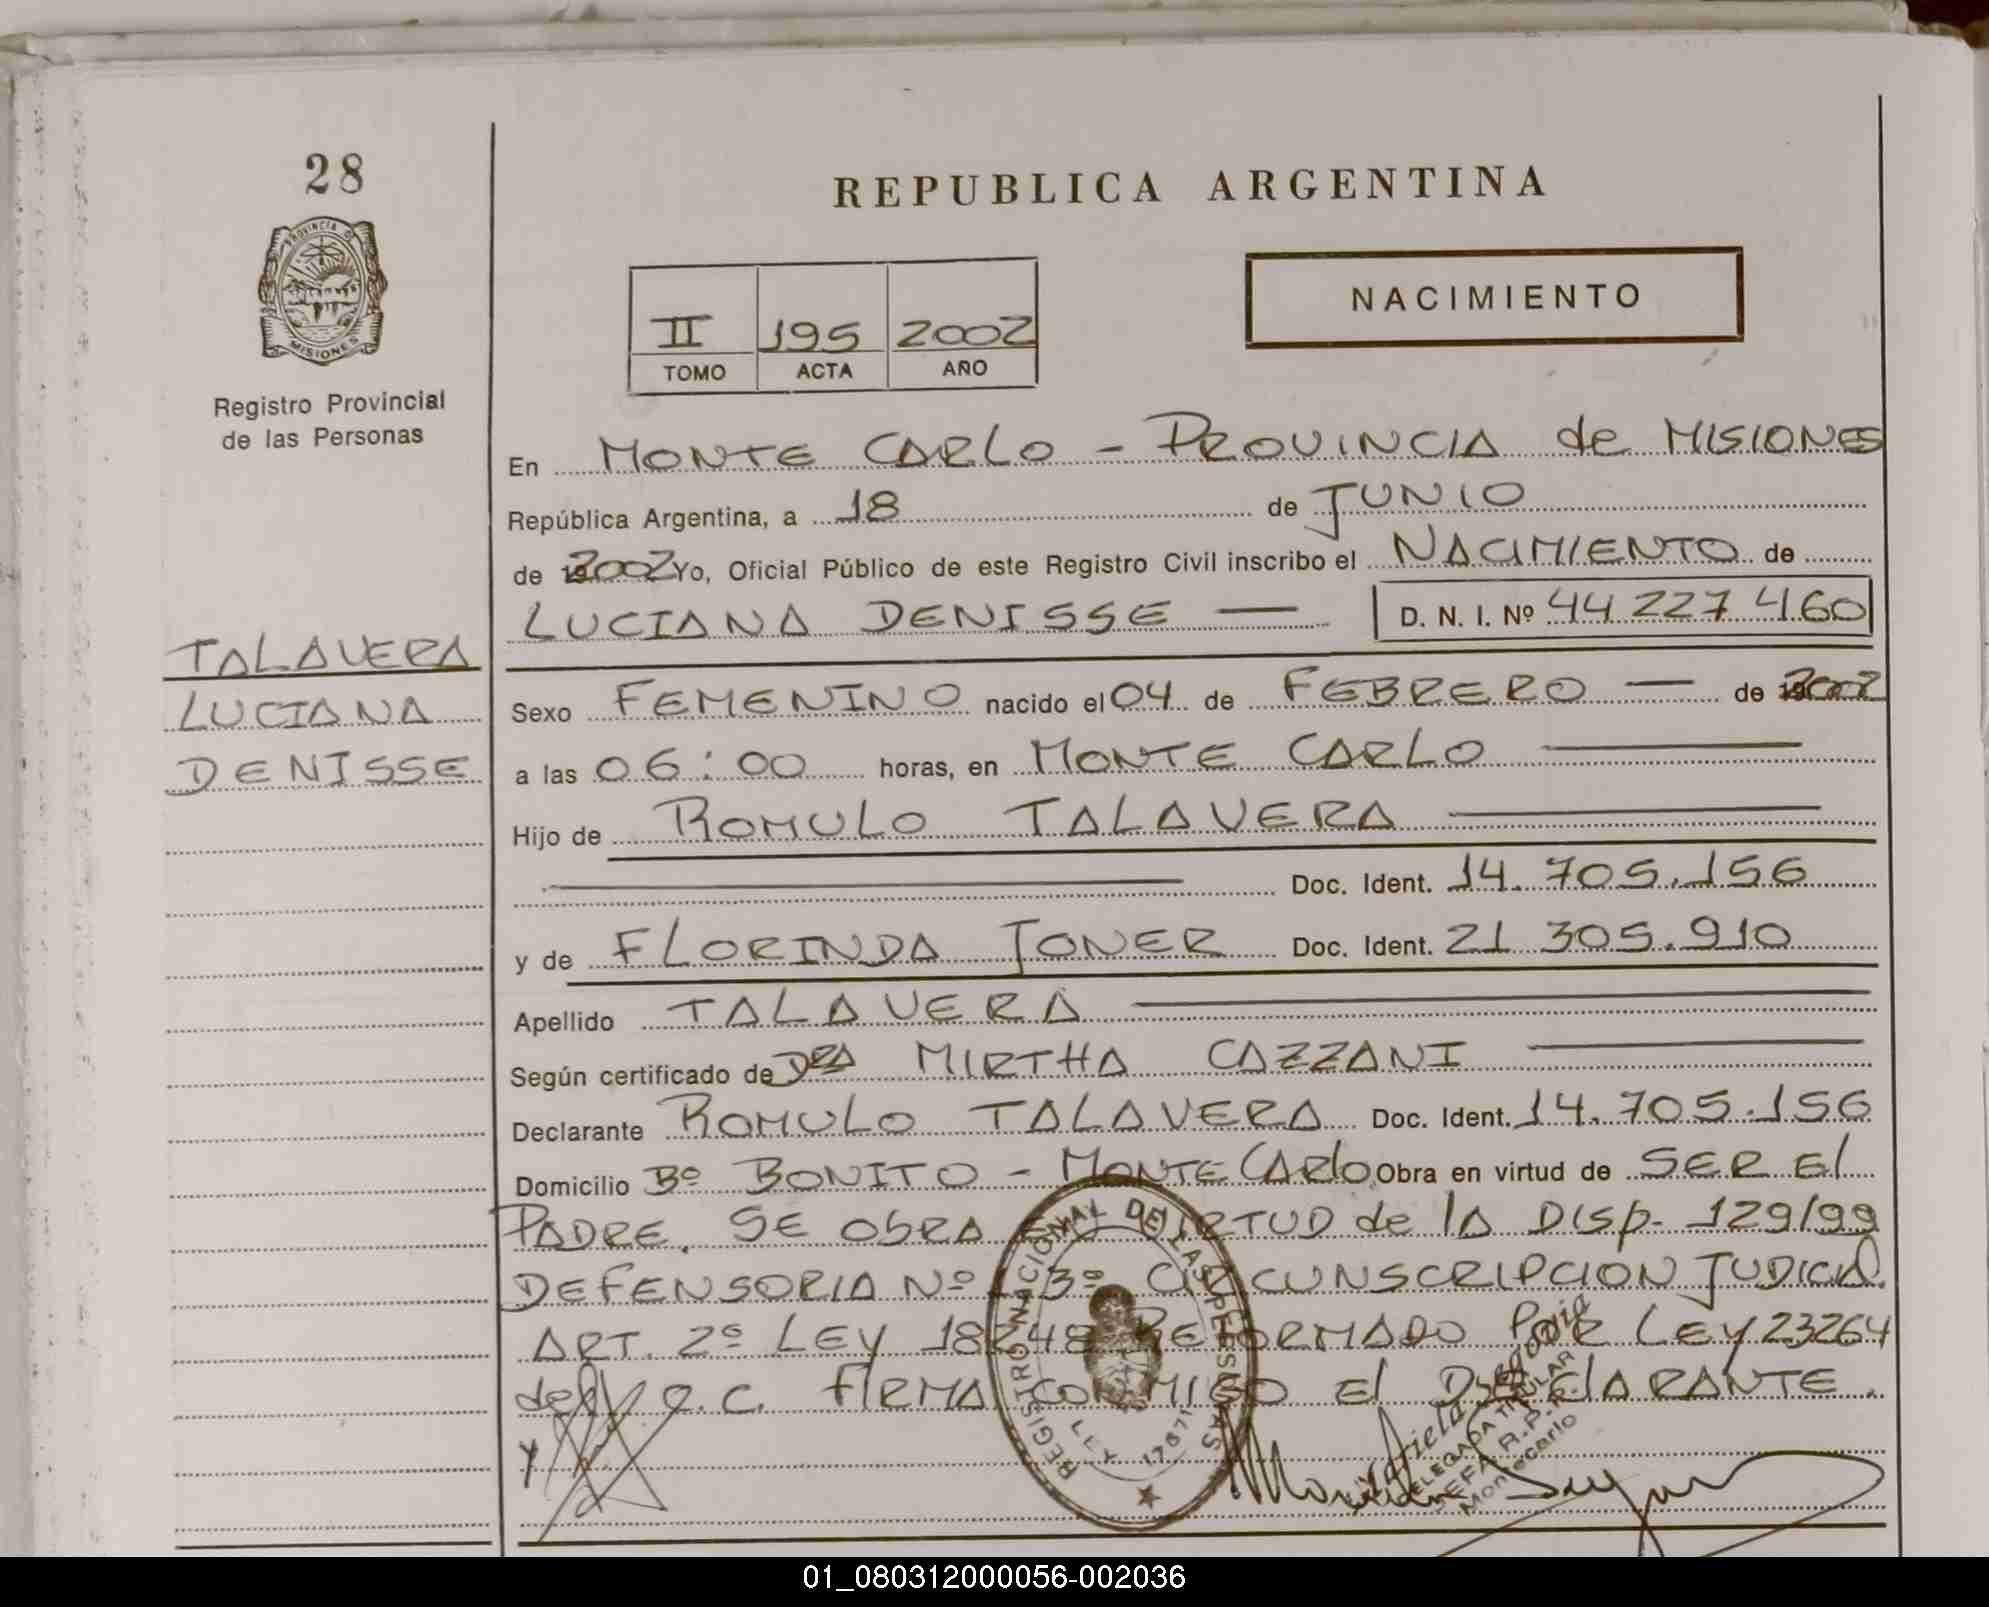 28
PROVINCIA DE
MISIONES
Registro Provincial
de las Personas
TALAVERA
LUCIANA
DENISSE
REPUBLICA ARGENTINA
II 195 2002
TOMO ACTA AÑO
NACIMIENTO
En MONTE CARLO - PROVINCIA de MISIONES
República Argentina, a 18 de JUNIO
de 2002 Yo, Oficial Público de este Registro Civil inscribo el NACIMIENTO de
LUCIANA DENISSE — D. N. I. Nº 44.227.460
Sexo FEMENINO nacido el 04 de FEBRERO — de 2002
a las 06:00 horas, en MONTE CARLO
Hijo de ROMULO TALAVERA
Doc. Ident. 14.705.156
y de FLORINDA JONER Doc. Ident. 21 305.910
Apellido TALAVERA
Según certificado de DRA MIRTHA CAZZANI
Declarante ROMULO TALAVERA Doc. Ident. 14.705.156
Domicilio Bº BONITO - MONTE CARlO Obra en virtud de SER El
PADRE. SE ObRA VIRTUD de lA DISp. 129/99
DEFENSORIA Nº 3º CIRCUNSCRIPCION JUDICIAL
ART. 2º LEY 18248 REFORMADO POR LEY 23264
del C.C. FIRMA CONMIGO El DEClARANTE.
REGISTRO NACIONAL DE LAS PERSONAS
LEY 17671
DELEGADA TITULAR
JEFA R.P.P.
Montecarlo
01_080312000056-002036